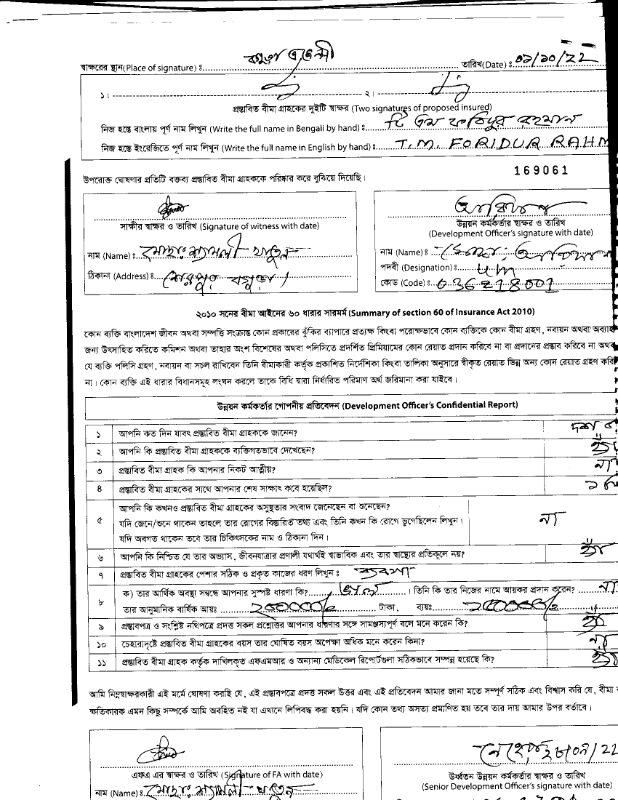 স্বাক্ষরের স্থান(Place of signature) ঃ তারিখ(Date) ঃ ০১/১০/২২
১। ২।
প্রস্তাবিত বীমা গ্রাহকের দুইটি স্বাক্ষর (Two signatures of proposed insured)
নিজ হস্তে বাংলায় পূর্ণ নাম লিখুন (Write the full name in Bengali by hand) ঃ টি এম ফরিদুর রহমান
নিজ হস্তে ইংরেজিতে পূর্ণ নাম লিখুন (Write the full name in English by hand) ঃ T.M. FORIDUR RAHM
169061
উপরোক্ত ঘোষণার প্রতিটি বক্তব্য প্রস্তাবিত বীমা গ্রাহককে পরিষ্কার করে বুঝিয়ে দিয়েছি।
সাক্ষীর স্বাক্ষর ও তারিখ (Signature of witness with date)
নাম (Name) ঃ মোছাঃ শ্যামলী খাতুন
ঠিকানা (Address) ঃ শেরপুর বগুড়া।
উন্নয়ন কর্মকর্তার স্বাক্ষর ও তারিখ
(Development Officer's signature with date)
নাম (Name) ঃ
পদবী (Designation) ঃ um
কোড (Code) ঃ 036218001
২০১০ সনের বীমা আইদের ৬০ ধারার সারমর্ম (Summary of section 60 of Insurance Act 2010)
কোন ব্যক্তি বাংলাদেশ জীবন অথবা সম্পত্তি সংক্রান্ত কোন প্রকারের ঝুঁকির ব্যাপারে প্রত্যক্ষ কিংবা পরোক্ষভাবে কোন ব্যক্তিকে কোন বীমা গ্রহণ, নবায়ন অথবা অব্যাহ
জন্য উৎসাহিত করিতে কমিশন অথবা তাহার অংশ বিশেষের অথবা পলিসিতে প্রদর্শিত প্রিমিয়ামের কোন রেয়াত প্রদান করিবে না বা প্রদানের প্রস্তাব করিবে না অথবা
যে ব্যক্তি পলিসি গ্রহণ, নবায়ন বা সচল রাখিবেন তিনি বীমাকারী কর্তৃক প্রকাশিত নির্দেশিকা কিংবা তালিকা অনুসারে স্বীকৃত রেয়াত ভিন্ন অন্য কোন রেয়াত গ্রহণ করি
না। কোন ব্যক্তি এই ধারার বিধানসমূহ লংঘন করলে তাকে বিধি দ্বারা নির্ধারিত পরিমাণ অর্থ জরিমানা করা যাইবে।
উন্নয়ন কর্মকর্তার গোপনীয় প্রতিবেদন (Development Officer's Confidential Report)
১ আপনি কত দিন যাবৎ প্রস্তাবিত বীমা গ্রাহককে জানেন? দশ
২ আপনি কি প্রস্তাবিত বীমা গ্রাহককে ব্যক্তিগতভাবে দেখেছেন? হ্যাঁ
৩ প্রস্তাবিত বীমা গ্রাহক কি আপনার নিকট আত্মীয়? না
৪ প্রস্তাবিত বীমা গ্রাহকের সাথে আপনার শেষ সাক্ষাৎ কবে হয়েছিল?
আপনি কি কখনও প্রস্তাবিত বীমা গ্রাহকের অসুস্থতার সংবাদ জেনেছেন বা শুনেছেন?
৫ যদি জেনে/শুনে থাকেন তাহলে তার রোগের বিস্তারিত তথ্য এবং তিনি কখন কি রোগে ভুগেছিলেন লিখুন। না
যদি অবগত থাকেন তবে তার চিকিৎসকের নাম ও ঠিকানা দিন।
৬ আপনি কি নিশ্চিত যে তার অভ্যাস, জীবনযাত্রার প্রণালী যথার্থই স্বাভাবিক এবং তার স্বাস্থ্যের প্রতিকূলে নয়? হ্যাঁ
৭ প্রস্তাবিত বীমা গ্রাহকের পেশার সঠিক ও প্রকৃত কাজের ধরণ লিখুন ঃ ব্যবসা
৮ ক) তার আর্থিক অবস্থা সম্বন্ধে আপনার সুস্পষ্ট ধারণা কি? ভাল । তিনি কি তার নিজের নামে আয়কর প্রদান করেন? না
তার আনুমানিক বার্ষিক আয়ঃ টাকা, ব্যয়ঃ
৯ প্রস্তাবপত্র ও সংশ্লিষ্ট নথিপত্রে প্রদত্ত সকল প্রশ্নোত্তর আপনার ধারণার সঙ্গে সামঞ্জস্যপূর্ণ বলে মনে করেন কি? হ্যাঁ
১০ চেহারাদৃষ্টে প্রস্তাবিত বীমা গ্রাহকের বয়স তার ঘোষিত বয়স অপেক্ষা অধিক মনে করেন কিনা? না
১১ প্রস্তাবিত বীমা গ্রাহক কর্তৃক দাখিলকৃত এফএমআর ও অন্যান্য মেডিকেল রিপোর্টগুলা সঠিকভাবে সম্পন্ন হয়েছে কি? হ্যাঁ
আমি নিম্নস্বাক্ষরকারী এই মর্মে ঘোষণা করছি যে, এই প্রস্তাবপত্রে প্রদত্ত সকল উত্তর এবং এই প্রতিবেদন আমার জানা মতে সম্পূর্ণ সঠিক এবং বিশ্বাস করি যে, বীমা
ক্ষতিকারক এমন কিছু সম্পর্কে আমি অবহিত নই যা এখানে লিপিবদ্ধ করা হয়নি। যদি কোন তথ্য অসত্য প্রমাণিত হয় তবে তার দায় আমার উপর বর্তাবে।
এফএ এর স্বাক্ষর ও তারিখ (Signature of FA with date)
নাম (Name) ঃ মোছাঃ শ্যামলী খাতুন
উর্ধ্বতন উন্নয়ন কর্মকর্তার স্বাক্ষর ও তারিখ
(Senior Development Officer's signature with date)